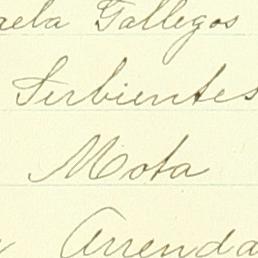 aela Gallegos
Serbientes
Mota
Arrenda